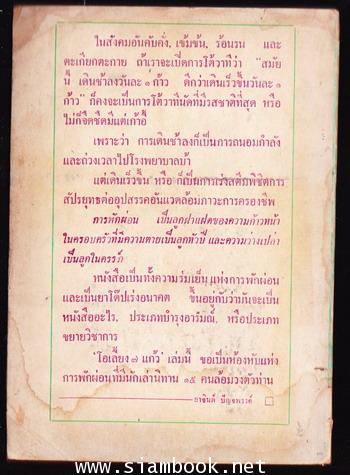 ในสังคมอันคับคั่ง, เข้มข้น, ร้อนรน และ
ตะเกียกตะกาย ถ้าเราจะเปิดการโต้วาทีว่า "สมัย
นี้ เดินช้าลงวันละ ๑ ก้าว ดีกว่าเดินเร็วขึ้นวันละ ๑
ก้าว" ก็คงจะเป็นการโต้วาทีนัดที่มีรสชาติที่สุด หรือ
ไม่ก็จืดชืดมีแต่เก้าอี้
เพราะว่า การเดินช้าลงก็เป็นการถนอมกำลัง
และถ่วงเวลาไปโรงพยาบาลบ้า
แต่เดินเร็วขึ้น หรือ ก็เป็นการเร่งสติมพิชิตการ
สัปรยุทธต่ออุปสรรคอันแวดล้อมภาวะการครองชีพ
การพักผ่อน เป็นลูกฝาแฝดของความก้าวหน้า
ในครอบครัวที่มีความตายเป็นลูกหัวปี และความว่างเปล่า
เป็นลูกในครรภ์
หนังสือเป็นทั้งความร่มเย็นแห่งการพักผ่อน
และเป็นยาโด๊ปเร่งอนาคต ขึ้นอยู่กับว่ามันจะเป็น
หนังสืออะไร, ประเภทบำรุงอารมณ์, หรือประเภท
ขยายวิชาการ
'โอเลี้ยง ๗ แก้ว' เล่มนี้ ขอเป็นห้องหับแห่ง
การพักผ่อนที่มีนักเล่านิทาน ๑๕ คนล้อมวงตัวท่าน
อาจินต์ ปัญจพรรค์
www.siambook.net